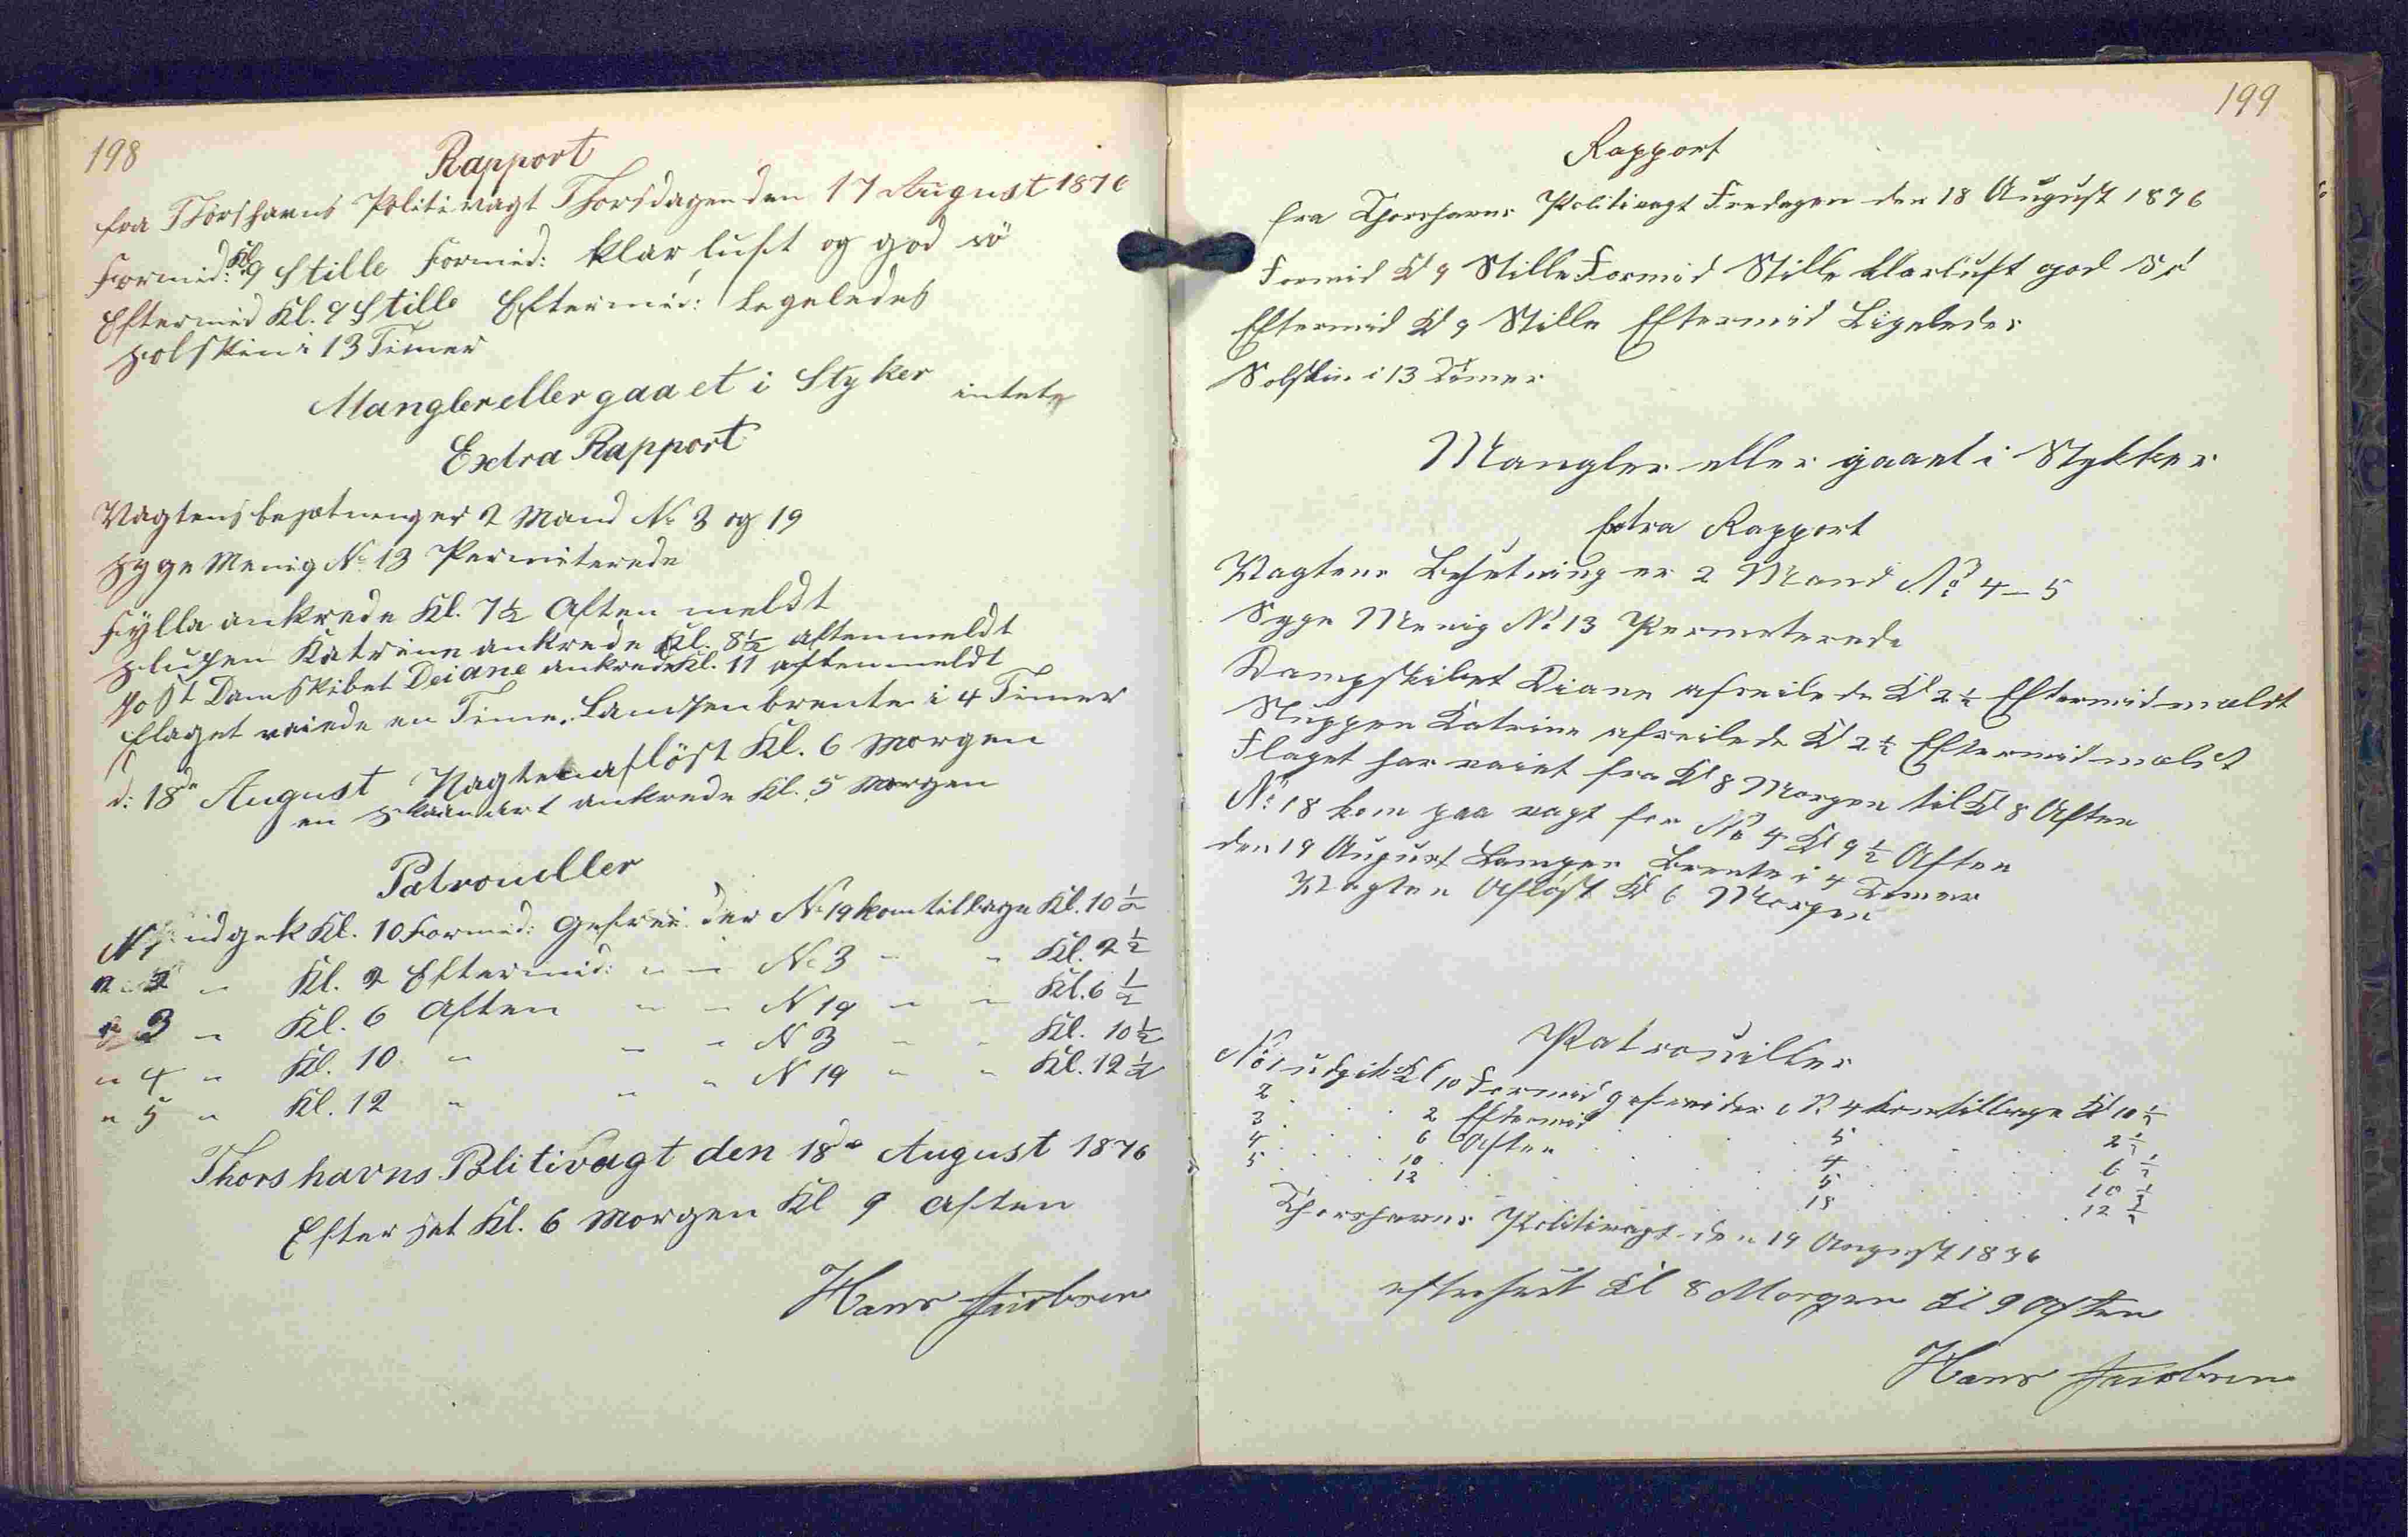 198
Rapport
fra Thorshavns Politivagt Thorsdagen den 17 August 1876
Formid: Kl. 9 Stille Formid: klar luft og god sö
Eftermid Kl. 9 Stille Eftermid: Legeledes
Solskin i 13 Timer
Mangler eller gaaet i Styker intet
Extra Rapport
Vagtens besætning er 2 Mand No 3 og 19
Syge Menig No 13 Permiterede
Fylla ankrede Kl. 7½ Aften meldt
Slupen Katrine ankrede Kl. 8½ aften meldt
Post Damskibet Deiane ankrede Kl. 11 aften meldt
Flaget vaiede en Time. Lampen brente i 4 Timer
d: 18de August Vagten aflöst Kl. 6 Morgen
en ankrede Kl. 5 Morgen
Patrouller
No 1 udgek Kl. 10 Formid: Gefrei der No 19 kom tilbage Kl. 10½
" 2 " Kl. 2 Eftermid: " " No 3 " " Kl. 2½
" 3 " Kl. 6 Aften " " N 19 " " Kl. 6½
" 4 " Kl. 10 " " " N 3 " " Kl. 10½
" 5 " Kl. 12 " " " N 19 " " Kl. 12½
Thorshavns Politivagt den 18de August 1876
Efter set Kl. 6 Morgen Kl 9 Aften
Hans Jacobsen
199
Rapport
fra Thorshavns Politivagt Fredagen den 18 August 1876
Formid Kl 9 Stille Formid Stille klarluft god Sö
Eftermid Kl 9 Stille Eftermid Ligeledes
Solskin i 13 Timer
Mangler eller gaaet i Stykker
Extra Rapport
Vagtens Besetning er 2 Mand No 4 – 5
Syge Menig No 13 Permeterede
Dampskibet Diane afseilede Kl 2½ Eftermid meldt
Sluppen Katrine afseilede Kl 2½ Eftermid meldt
Flaget har vaiet fra Kl 8 Morgen til Kl 8 Aften
No 18 kom paa vagt for No 4 Kl 9½ Aften
den 19 August Lampen Brente i 4 Timer
Vagten Aflöst Kl 6 Morgen
Patrouiller
No 1 udgik Kl 10 Formid gefreider No 4 kom tilbage Kl 10½
2 . . . 2 Eftermid . . . 5 . . . 2½
3 . . . 6 Aften . . . 4 . . . 6½
4 . . . 10 . . . 5 . . . 10½
5 . . . 12 . . . 18 . . . 12½
Thorshavns Politivagt den 19 August 1876
efterseet Kl 8 Morgen Kl 9 Aften
Hans Jacobsen